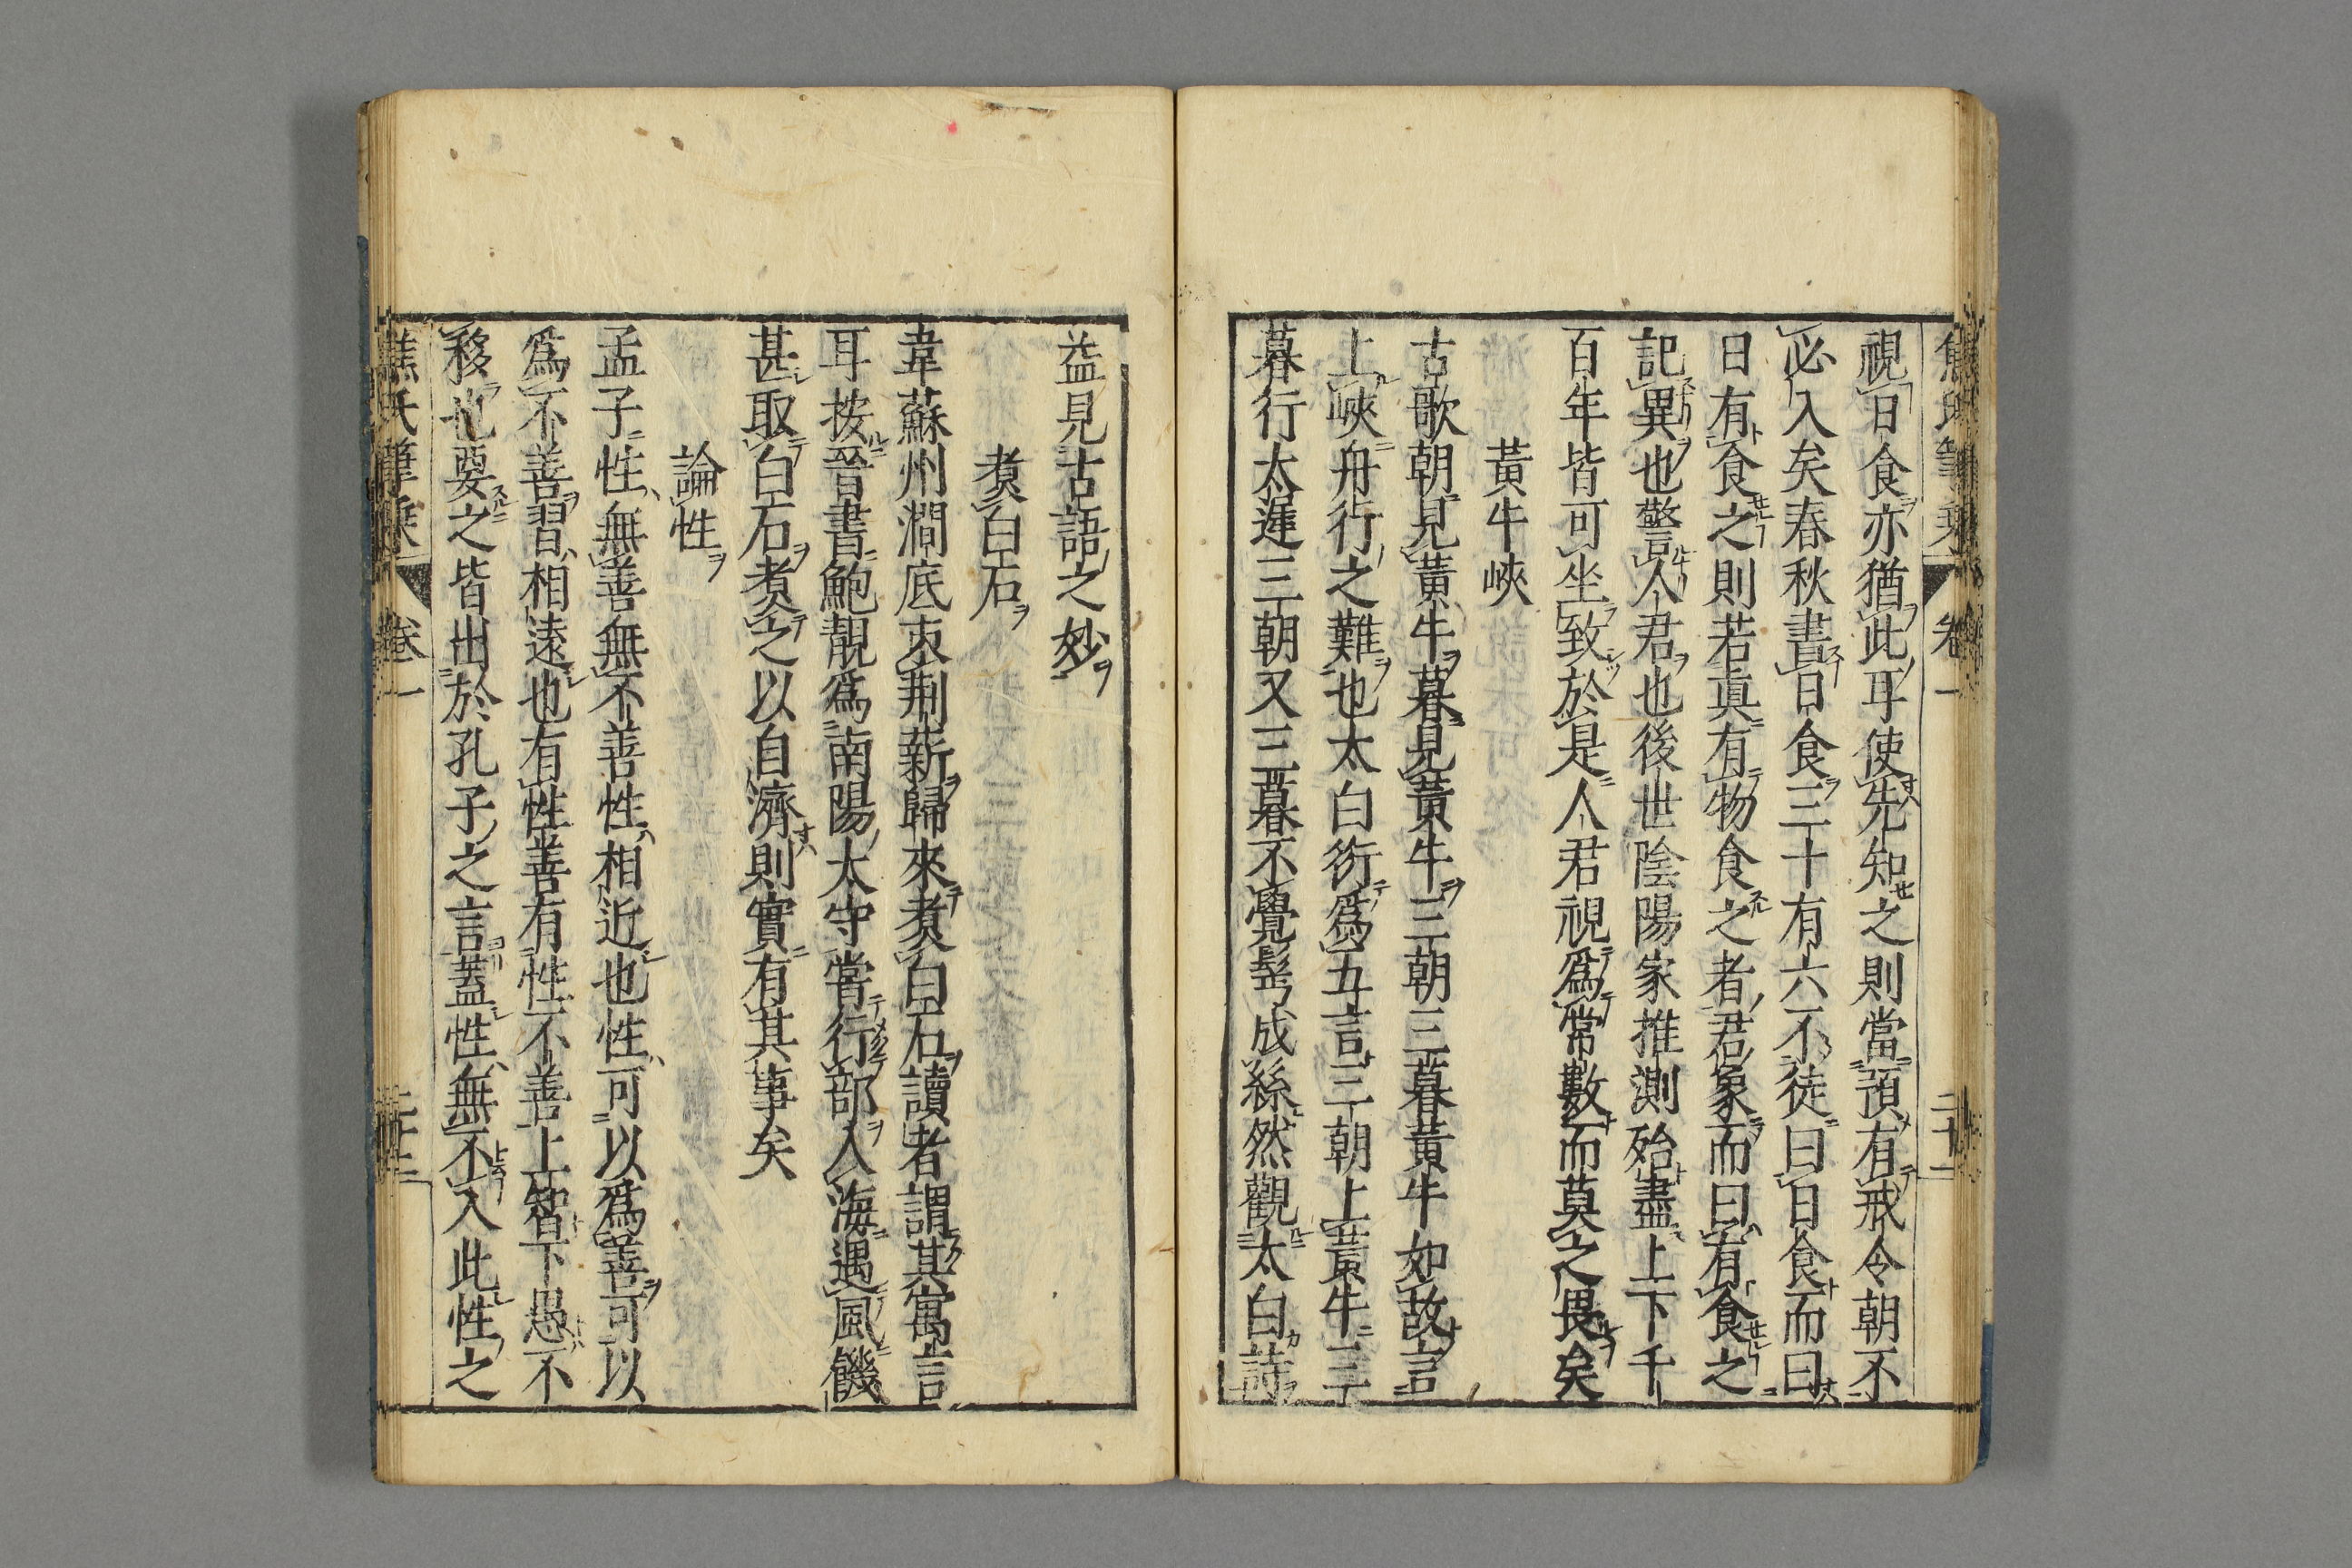 視日食亦猶此耳使先知之則當預有戒令朝不
必入矣春秋書日食三十有六不徒曰日食而曰
日有食之則若眞有物食之者君象而曰有食之
記異也警人君也後世陰陽家推測殆盡上下千
百年皆可坐致於是人君視爲常數而莫之畏矣
黃牛峽
古歌朝見黃牛暮見黃牛三朝三暮黃牛如故言
上峽舟行之難也太白衍爲五言三朝上黃牛三
暮行太遲三朝又三暮不覺鬓成絲然觀太白詩
益見古語之妙
煑白石
韋蘇州澗底束荆薪歸來煑白石讀者謂其寓言
耳按晉書鮑靚爲南陽太守嘗行部入海遇風饑
甚取白石煑之以自濟則實有其事矣
論性
孟子性無善無不善性相近也性可以爲善可以
爲不善習相遠也有性善有性不善上智下愚不
移也要之皆出於孔子之言蓋性無不入此性之
焦氏筆乗 卷一 二十二